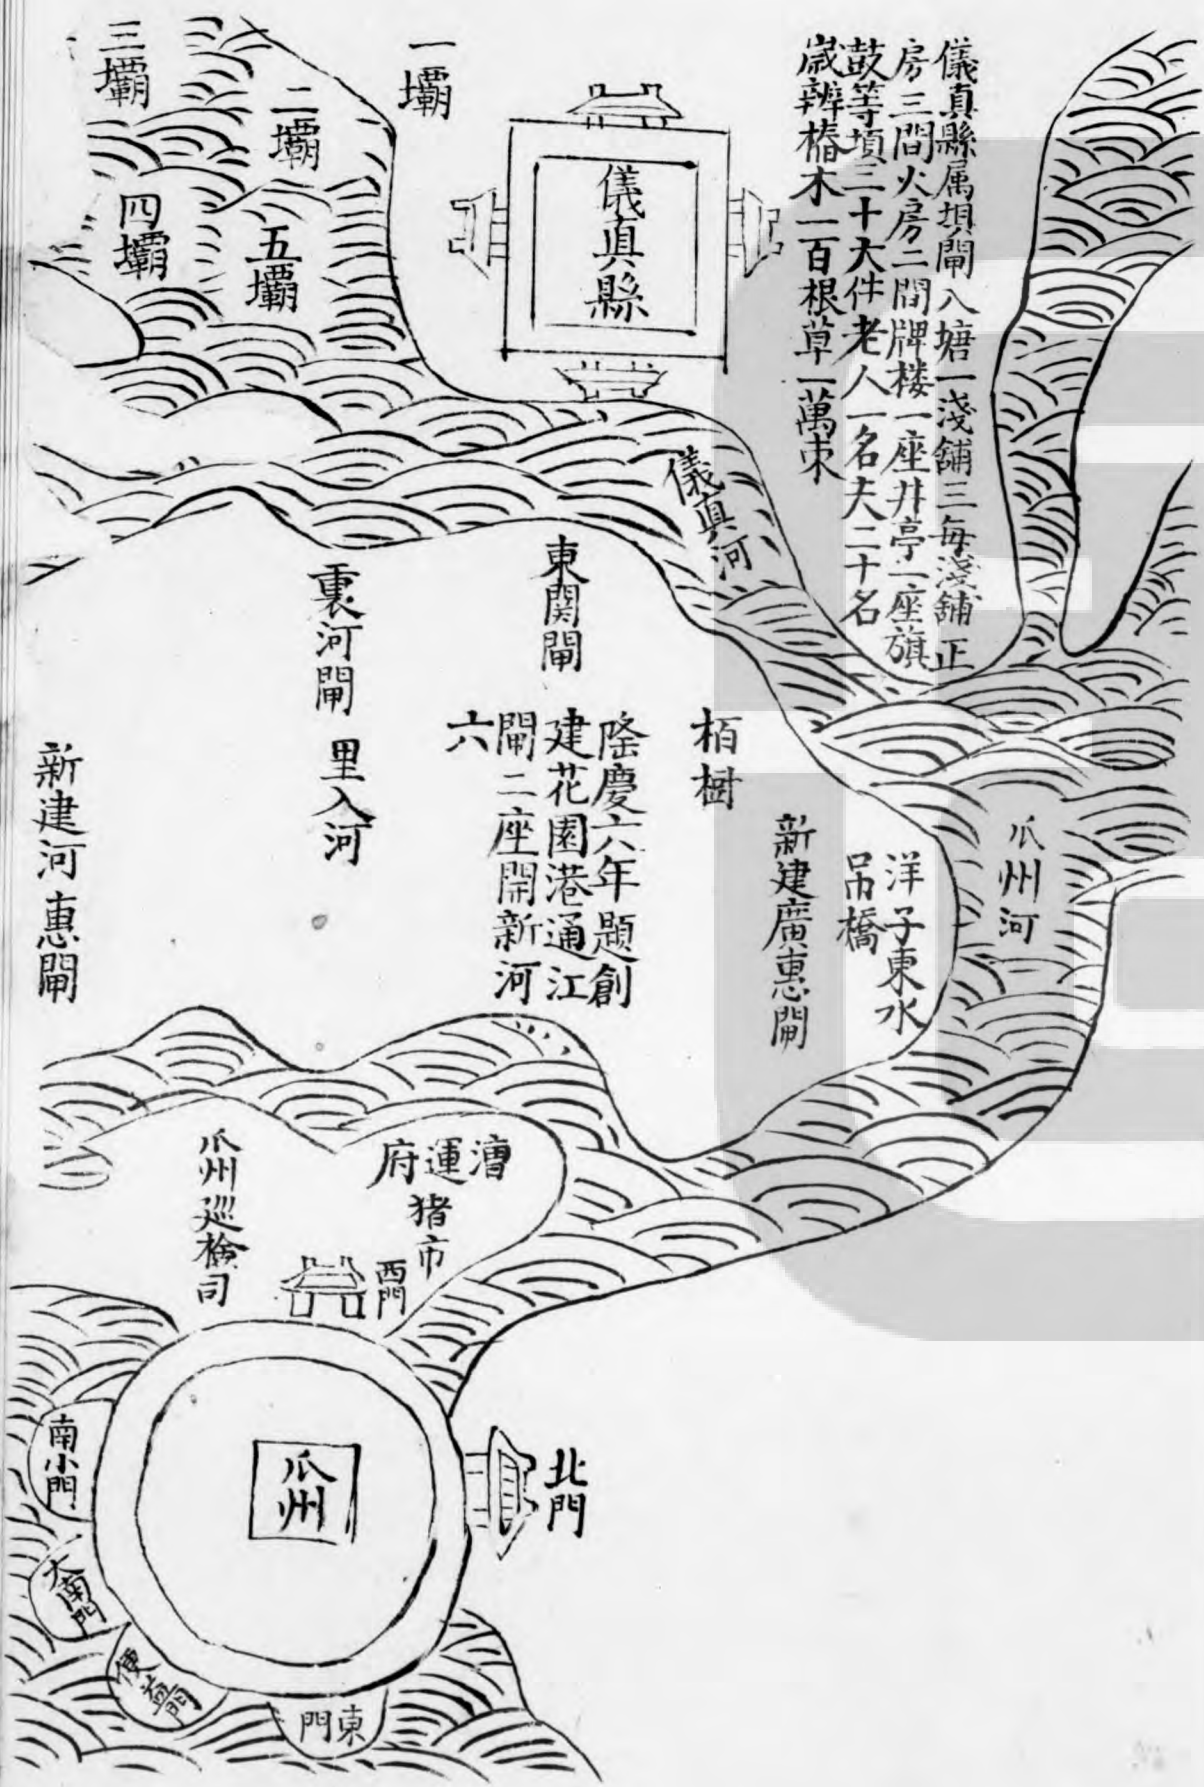 儀真縣属垻閘八塘一淺舖三每淺舖正
房三間火房二間牌楼一座井亭一座旗
鼓等項三十大件老人一名夫二十名
歳辨樁木一百根草一萬束
儀真縣
一壩
二壩
三壩
四壩
五壩
儀真河
東関閘
裏河閘
里入河
新建河惠閘
隆慶六年題創
建花園港通江
閘二座開新河
六
栢樹
新建廣惠閘
洋子東水
吊橋
瓜州河
漕運府
猪市
瓜州廵檢司
西門
瓜州
北門
南小門
大南門
便益門
東門